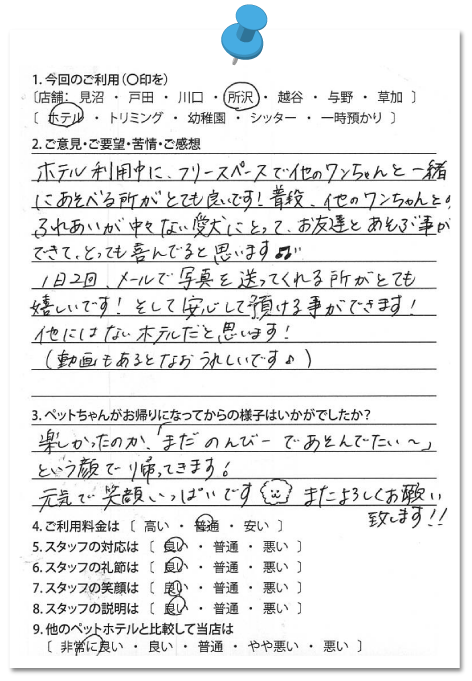 1. 今回のご利用(〇印を)
〔店舗： 見沼 ・ 戸田 ・ 川口 ・ 所沢 ・ 越谷 ・ 与野 ・ 草加 〕
〔 ホテル ・ トリミング ・ 幼稚園 ・ シッター ・ 一時預かり 〕
2. ご意見・ご要望・苦情・ご感想
ホテル利用中に、フリースペースで他のワンちゃんと一緒
にあそべる所がとても良いです！普段、他のワンちゃんとの
ふれあいが中々ない愛犬にとって、お友達とあそぶ事が
できて、とっても喜んでると思います♫
1日2回、メールで写真を送ってくれる所がとても
嬉しいです！そして安心して預ける事ができます！
他にはないホテルだと思います！
(動画もあるとなおうれしいです♪)
3. ペットちゃんがお帰りになってからの様子はいかがでしたか？
楽しかったのか、「まだのんびーであそんでたい〜」
という顔で帰ってきます！
元気で笑顔いっぱいです またよろしくお願い
致します!!
4. ご利用料金は 〔 高い ・ 普通 ・ 安い 〕
5. スタッフの対応は 〔 良い ・ 普通 ・ 悪い 〕
6. スタッフの礼節は 〔 良い ・ 普通 ・ 悪い 〕
7. スタッフの笑顔は 〔 良い ・ 普通 ・ 悪い 〕
8. スタッフの説明は 〔 良い ・ 普通 ・ 悪い 〕
9. 他のペットホテルと比較して当店は
〔 非常に良い ・ 良い ・ 普通 ・ やや悪い ・ 悪い 〕